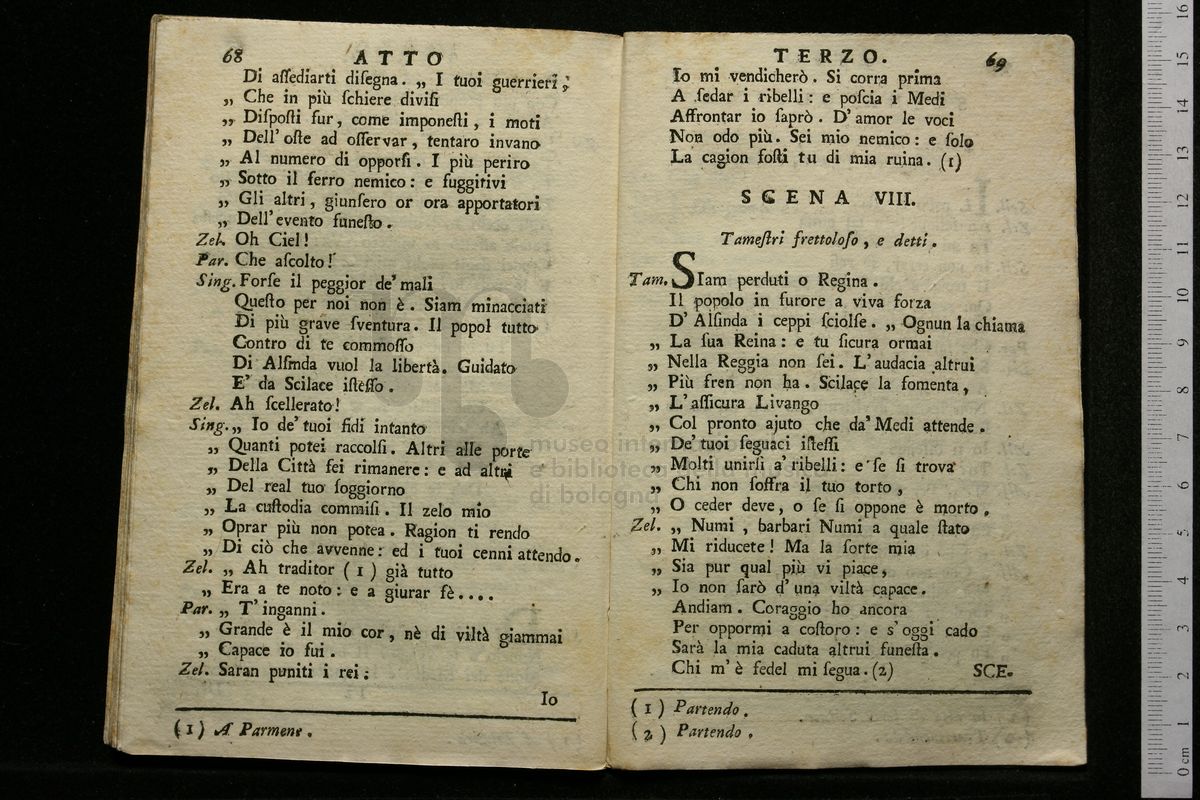 68 ATTO
Di aſſediarti diſegna. „ I tuoi guerrieri,
„ Che in più ſchiere diviſi
„ Diſpoſti fur, come imponeſti, i moti
„ Dell'oſte ad oſſervar, tentaro invano
„ Al numero di opporſi. I più periro
„ Sotto il ferro nemico: e fuggitivi
„ Gli altri, giunſero or ora apportatori
„ Dell'evento funeſto.
Zel. Oh Ciel!
Par. Che aſcolto!
Sing. Forſe il peggior de' mali
Queſto per noi non è. Siam minacciati
Di più grave ſventura. Il popol tutto
Contro di te commoſſo
Di Alſinda vuol la libertà. Guidato
E' da Scilace iſteſſo.
Zel. Ah ſcellerato!
Sing. „ Io de' tuoi fidi intanto
„ Quanti potei raccolſi. Altri alle porte
„ Della Città fei rimanere: e ad altri
„ Del real tuo ſoggiorno
„ La cuſtodia commiſi. Il zelo mio
„ Oprar più non potea. Ragion ti rendo
„ Di ciò che avvenne: ed i tuoi cenni attendo.
Zel. „ Ah traditor (1) già tutto
„ Era a te noto: e a giurar fè....
Par. „ T'inganni.
„ Grande è il mio cor, nè di viltà giammai
„ Capace io fui.
Zel. Saran puniti i rei:
Io
(1) A Parmene.
TERZO. 69
Io mi vendicherò. Si corra prima
A ſedar i ribelli: e poſcia i Medi
Affrontar io ſaprò. D'amor le voci
Non odo più. Sei mio nemico: e ſolo
La cagion foſti tu di mia ruina. (1)
SCENA VIII.
Tameſtri frettoloſo, e detti.
Tam. SIam perduti o Regina.
Il popolo in furore a viva forza
D'Alſinda i ceppi ſciolſe. „ Ognun la chiama
„ La ſua Reina: e tu ſicura ormai
„ Nella Reggia non ſei. L'audacia altrui
„ Più fren non ha. Scilace la fomenta,
„ L'aſſicura Livango
„ Col pronto ajuto che da' Medi attende.
„ De' tuoi ſeguaci iſteſſi
„ Molti unirſi a' ribelli: e ſe ſi trova
„ Chi non ſoffra il tuo torto,
„ O ceder deve, o ſe ſi oppone è morto.
Zel. „ Numi, barbari Numi a quale ſtato
„ Mi riducete! Ma la ſorte mia
„ Sia pur qual più vi piace,
„ Io non ſarò d'una viltà capace.
Andiam. Coraggio ho ancora
Per oppormi a coſtoro: e s'oggi cado
Sarà la mia caduta altrui funeſta.
Chi m'è fedel mi ſegua. (2) SCE-
(1) Partendo.
(2) Partendo.
museo inter
e biblioteca della
di bologna
0 cm 1 2 3 4 5 6 7 8 9 10 11 12 13 14 15 16